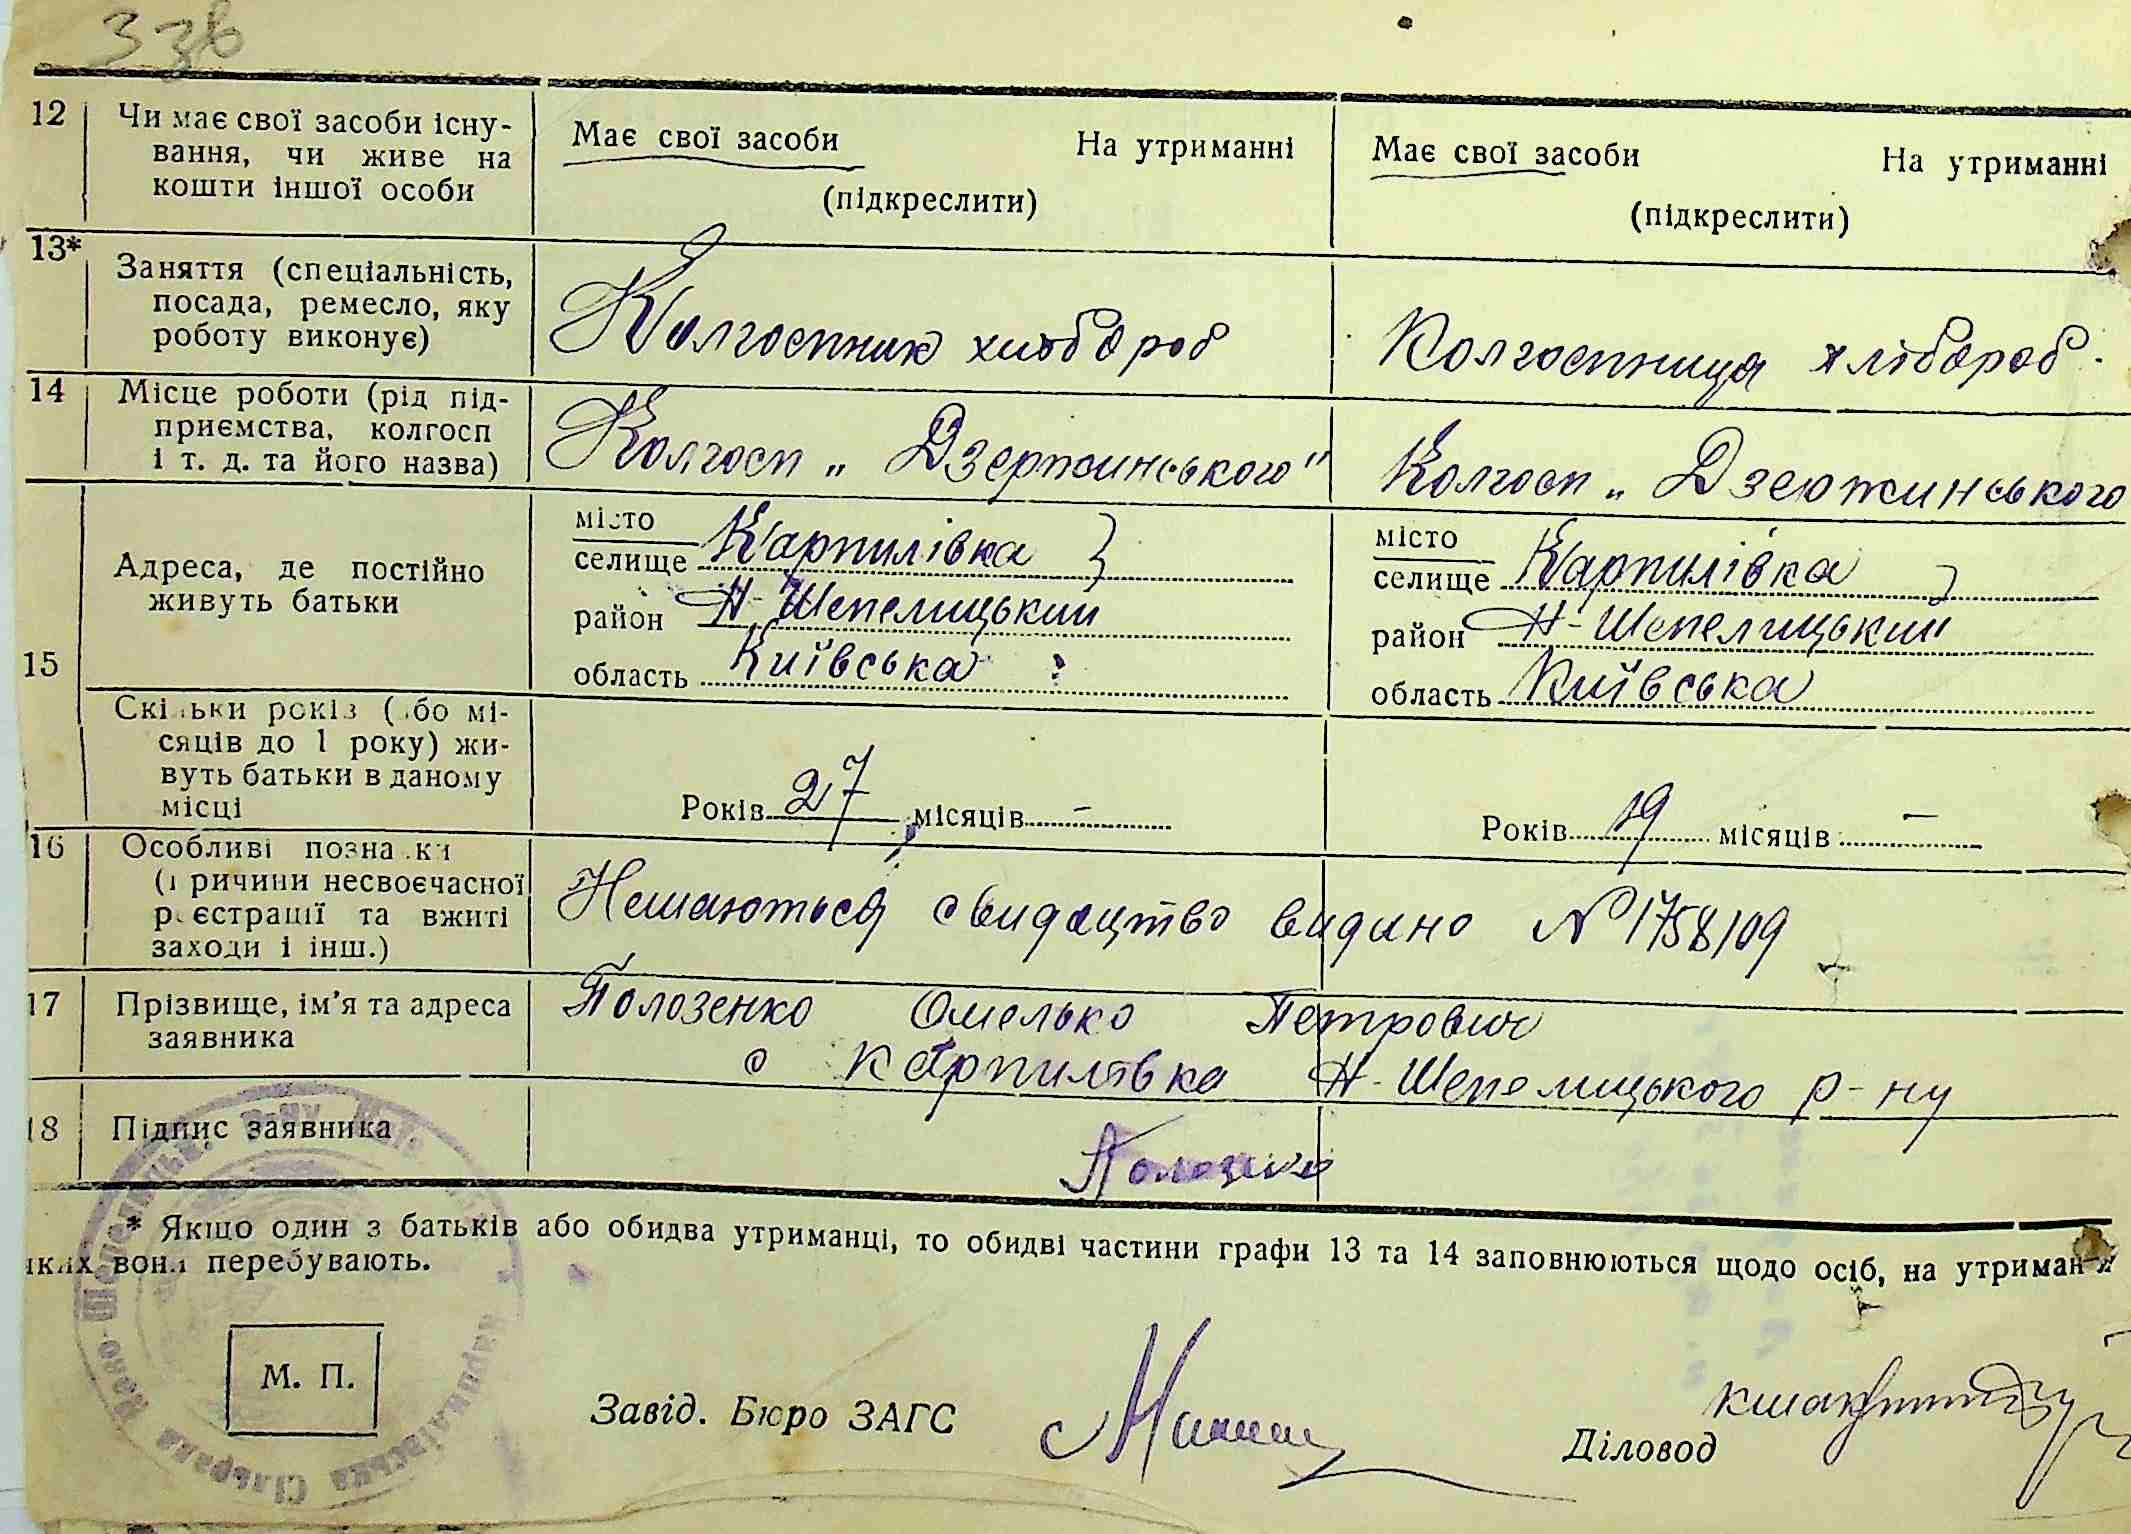 338
12 Чи має свої засоби існу-
вання, чи живе на
кошти іншої особи
Має свої засоби На утриманні
(підкреслити)
Має свої засоби На утриманні
(підкреслити)
13* Заняття (спеціальність,
посада, ремесло, яку
роботу виконує)
Колгоспник хлібороб
Колгоспниця хлібороб
14 Місце роботи (рід під-
приємства, колгосп
і т. д. та його назва)
Колгосп „Дзержинського"
Колгосп „Дзержинського
15 Адреса, де постійно
живуть батьки
місто
селище Карпилівка
район Н-Шепелицький
область Київська
місто
селище Карпилівка
район Н-Шепелицький
область Київська
Скільки років (або мі-
сяців до 1 року) жи-
вуть батьки в даному
місці
Років 27 місяців –
Років 19 місяців –
16 Особливі познаки
(причини несвоєчасної
реєстрації та вжиті
заходи і інш.)
Немаються свидацтво видано № 1758109
17 Прізвище, ім'я та адреса
заявника
Полозенко Омелько Петрович
с Карпилівка Н-Шепелицького р-ну
18 Підпис заявника
* Якщо один з батьків або обидва утриманці, то обидві частини графи 13 та 14 заповнюються щодо осіб, на утриман-
яких вони перебувають.
М. П.
Завід. Бюро ЗАГС
Діловод
Карпилівська Сільрада Ново-Шепелицьк. р-ну